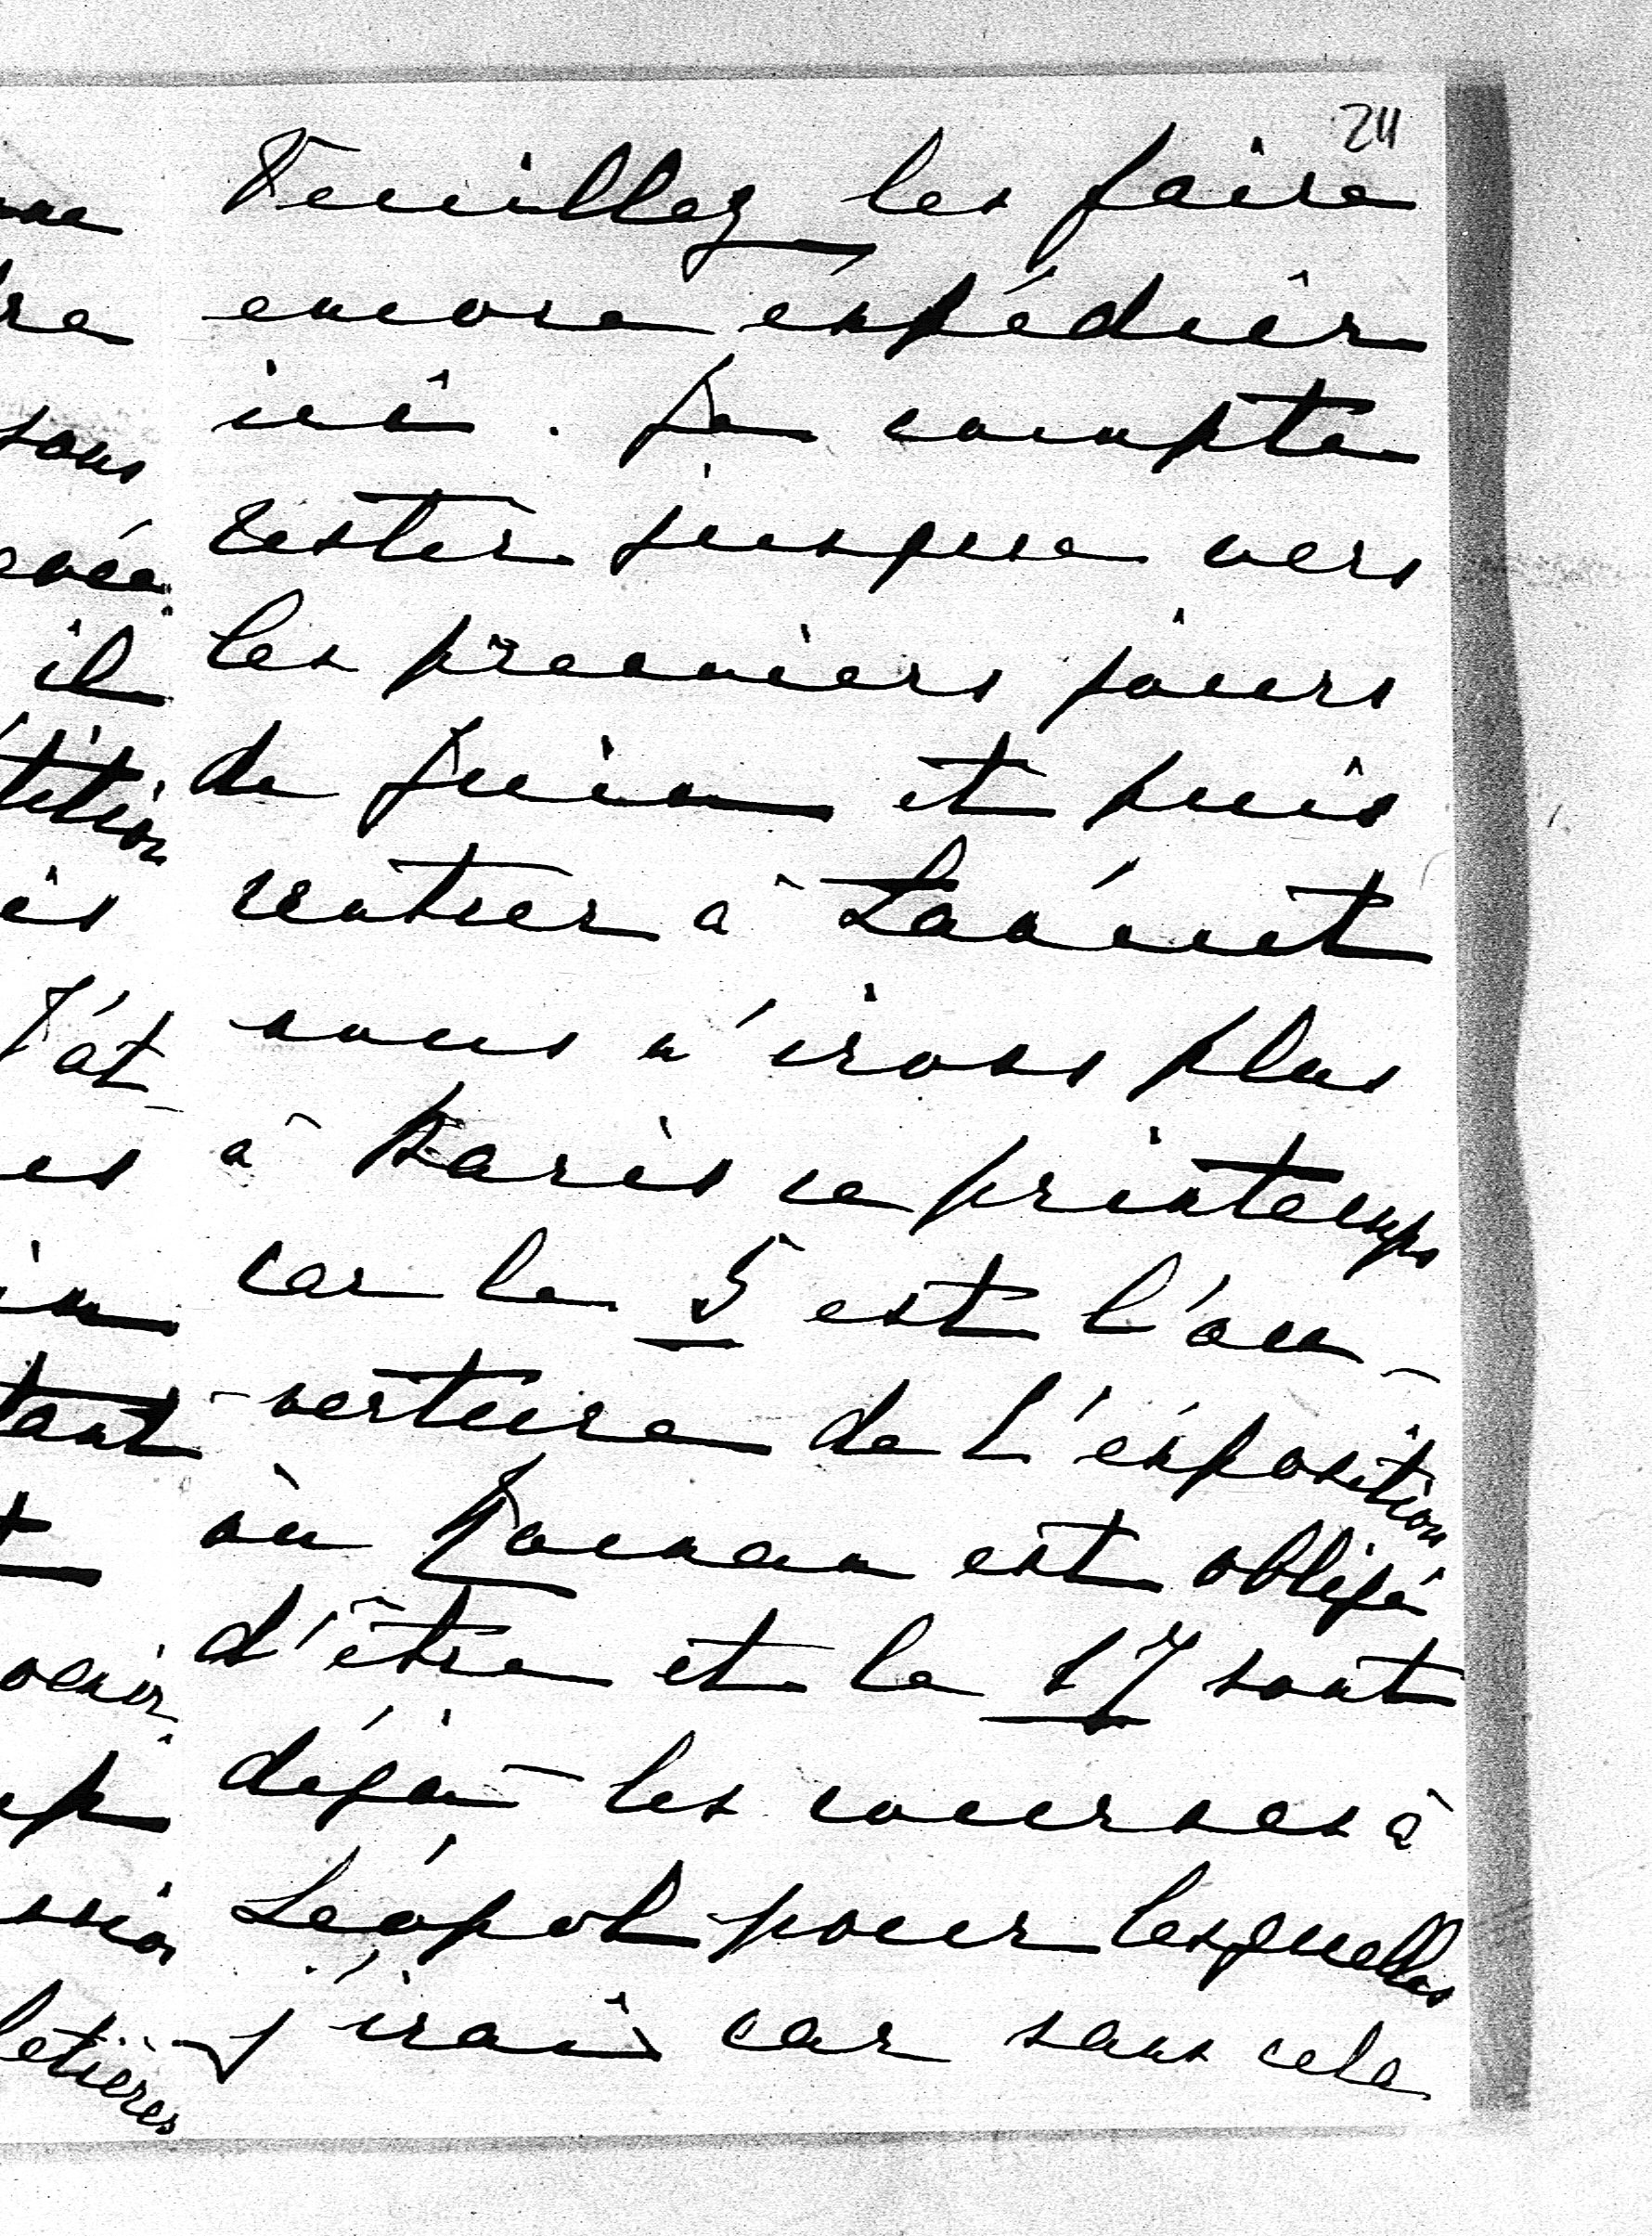 211
re
sous
il
tition
es
in
tant
t
venir.
letières
Veuillez les faire
encore expédier
ici. Je compte
rester jusque vers
les premiers jours
de Juin et puis
rentrer à Łańcut
nous n'irons plus
à Paris ce printemps
car le 5 est l'ou-
-verture de l'éxposition
où Roman est obligé
d'être et le 17 sont
déjà les courses à
Léopol pour lesquelles
j'irai car sans cela